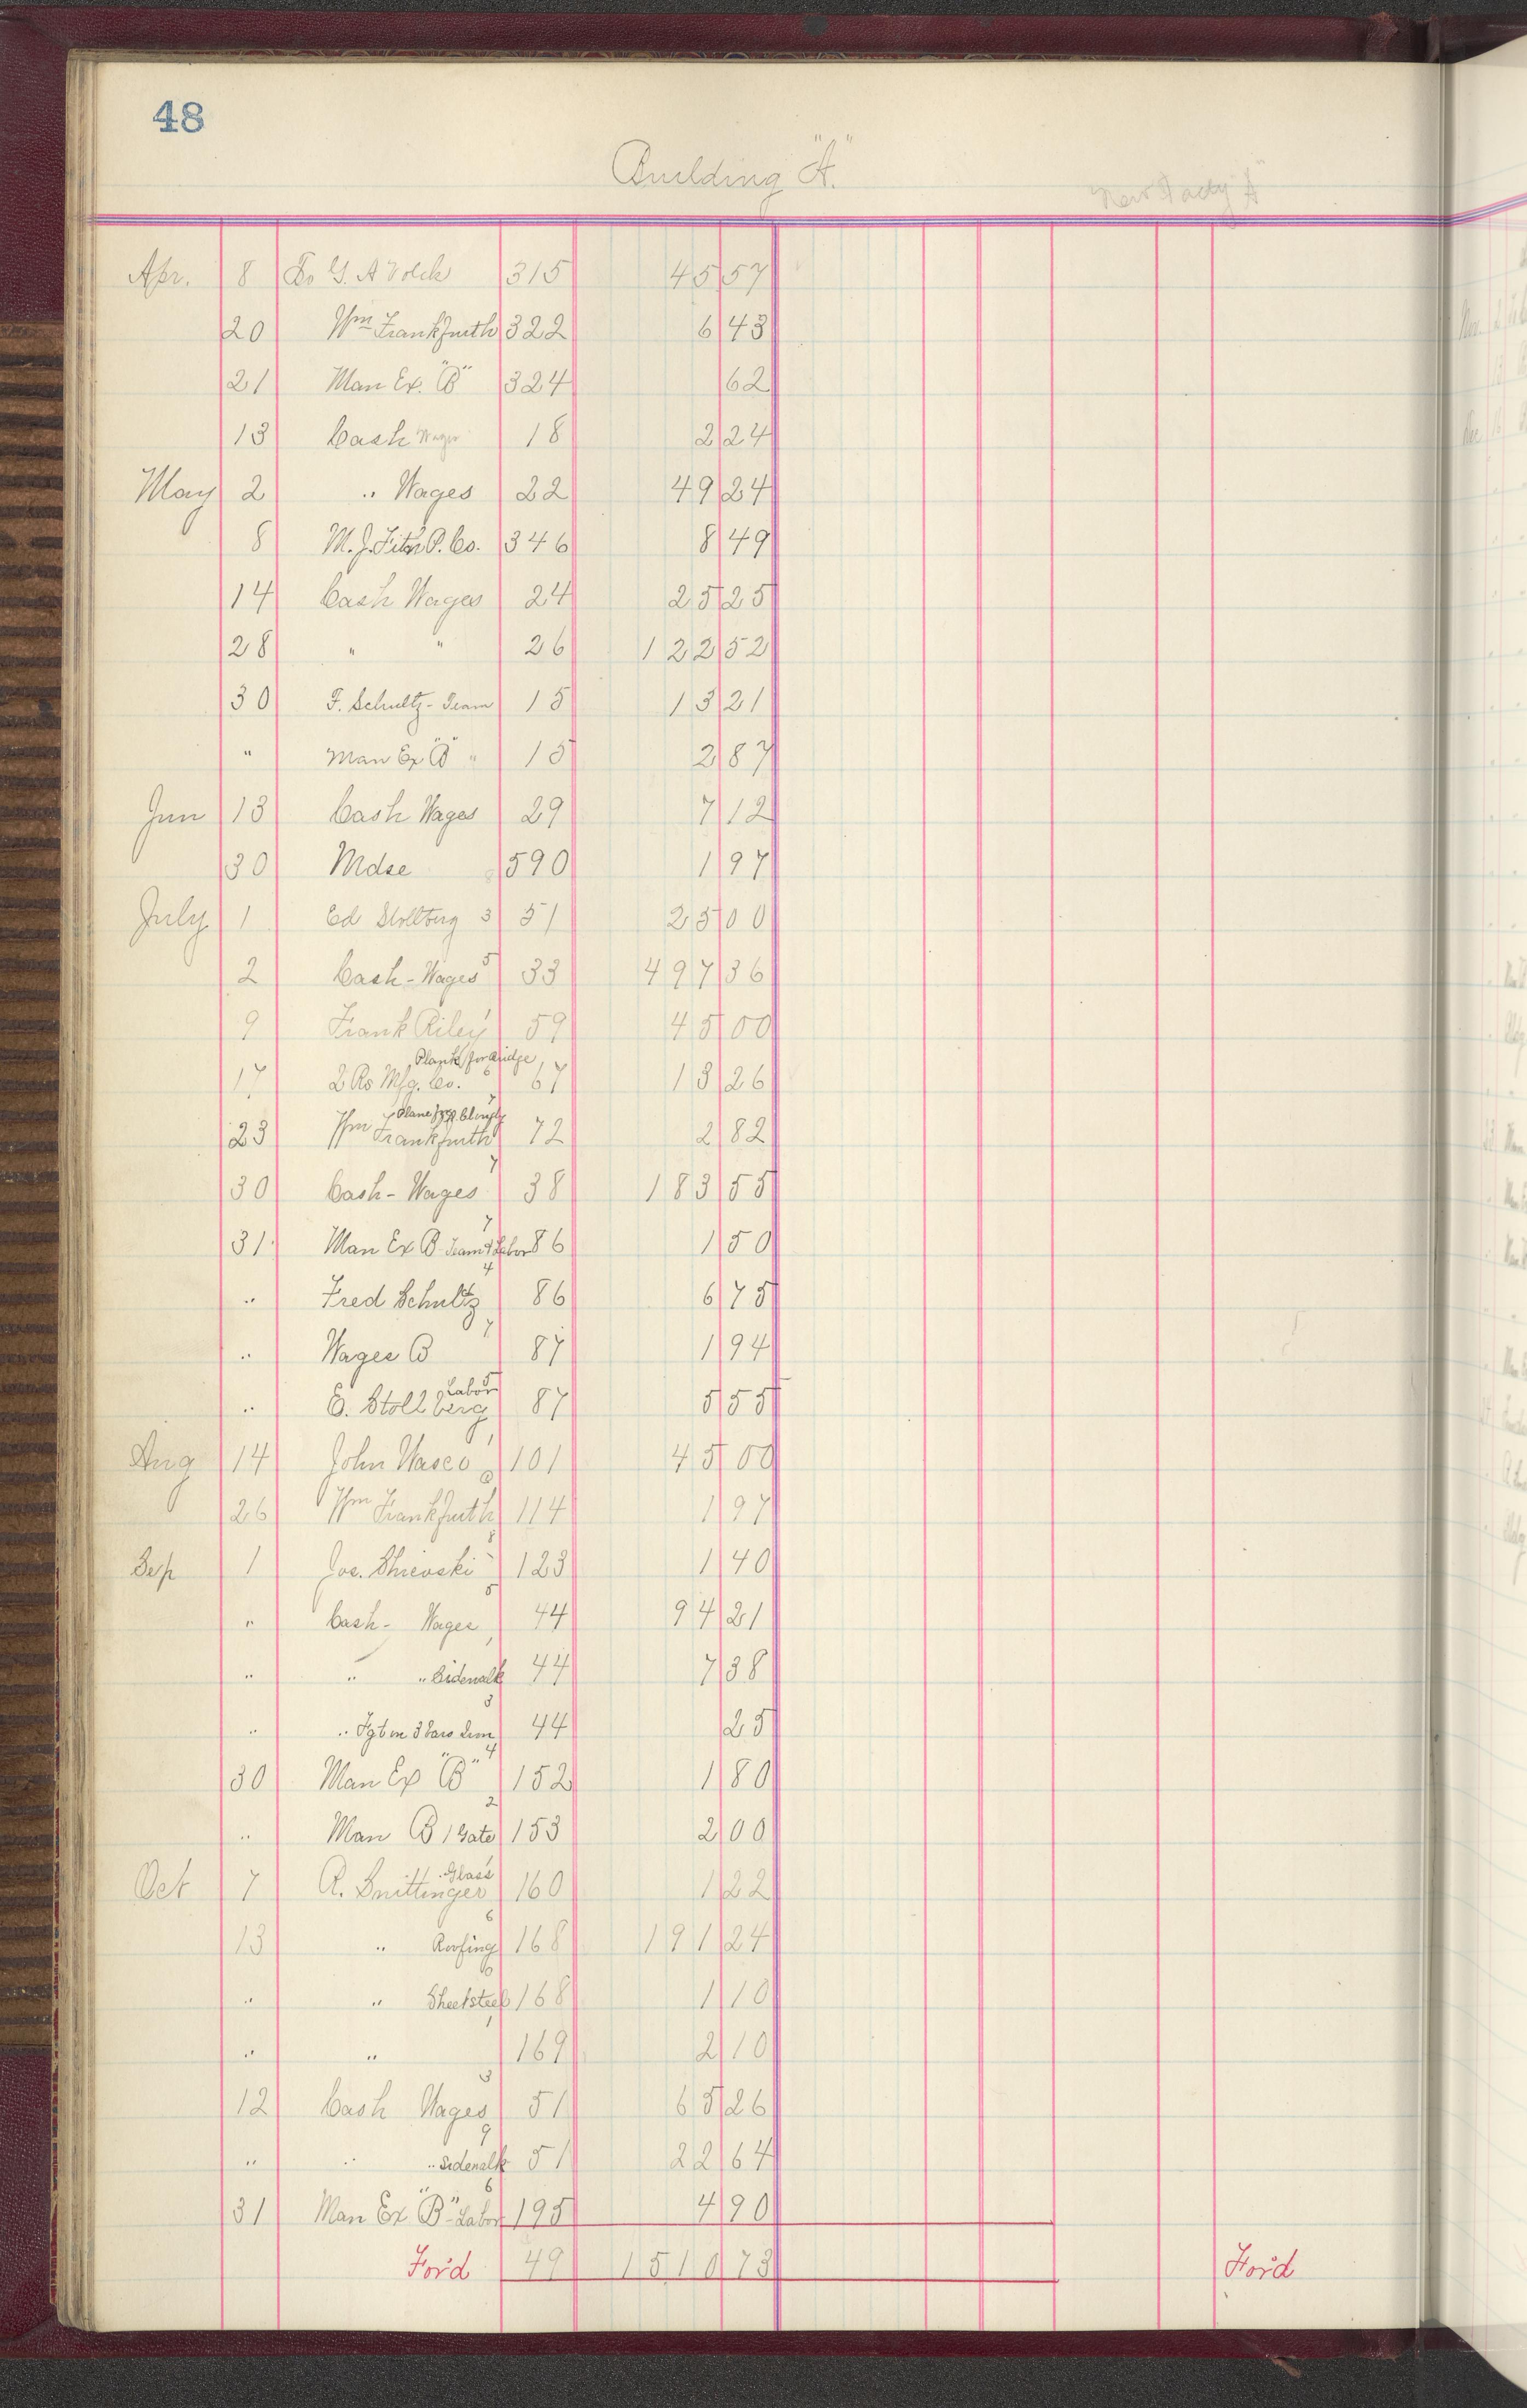 48
Building "A"
New Facty "A"
Apr. 8 To G. A Volck 315 45 57
20 Wm Frankfurth 322 6 43
21 Man Ex. "B" 324 62
13 Cash Wages 18 2 24
May 2 " Wages 22 49 24
8 M. J. P. Co. 346 8 49
14 Cash Wages 24 25 25
28 " " 26 122 52
30 F. Schultz - Team 15 13 21
" Man Ex "B" " 15 2 87
Jun 13 Cash Wages 29 7 12
30 Mdse 590 1 97
July 1 Ed Stollberg 3 51 25 00
2 Cash - Wages 5 33 497 36
9 Frank Riley 59 45 00
Plank for Bridge
17 2 Rs Mfg. Co. 67 13 26
23 Wm Frankfurth 72 2 82
30 Cash - Wages 7 38 183 55
31 Man Ex B Team & Labor 7 86 1 50
" Fred Schultz 4 86 6 75
" Wages B 7 87 1 94
Labor
" E. Stollberg 87 5 55
Aug 14 John Wasco 101 45 00
26 Wm Frankfurth 114 1 97
Sep 1 Jos. 123 1 40
" Cash - Wages 5 44 94 21
" " " Sidewalk 44 7 38
" " Fgt on 3 bars 44 25
30 Man Ex "B" 4 152 1 80
" Man B 1 Gate 2 153 2 00
Glass
Oct 7 A. Snittinger 160 1 22
13 " Roofing 6 168 191 24
" " Sheetsteel 6 168 1 10
" " 169 2 10
12 Cash Wages 3 51 65 26
" " " Sidewalk 9 51 22 64
31 Man Ex "B" Labor 6 195 4 90
For'd 49 1510 73 For'd